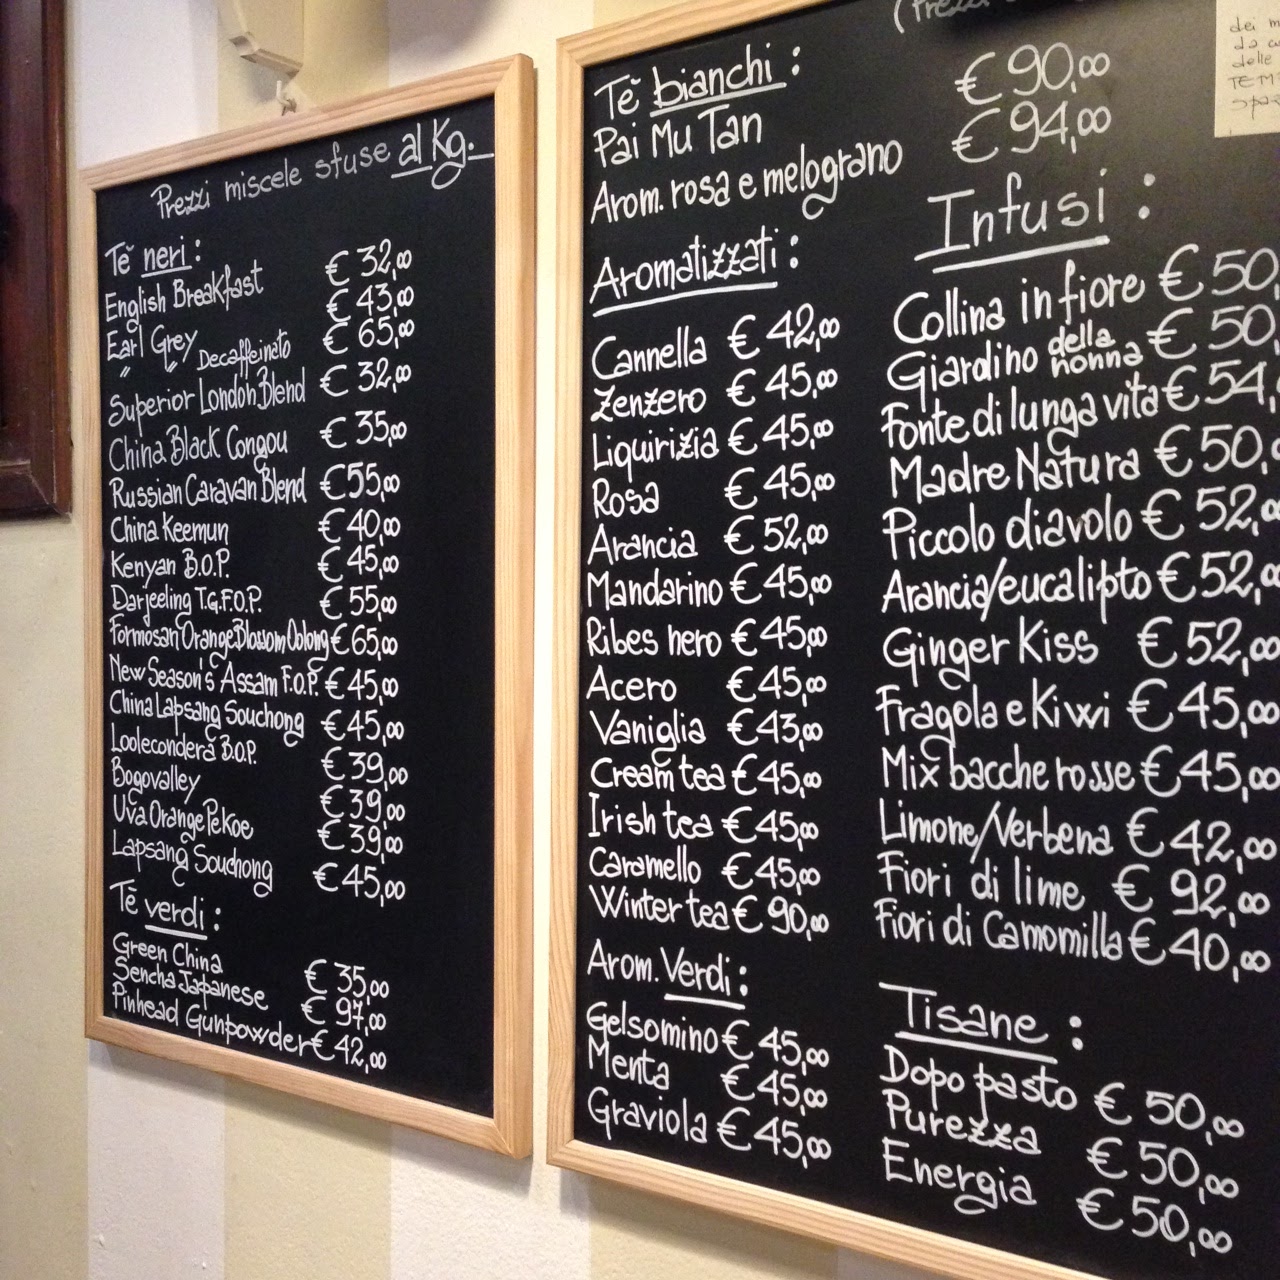 Prezzi miscele sfuse al Kg.
Tè neri:
English Breakfast € 32,00
Earl Grey € 43,00
" " Decaffeinato € 65,00
Superior London Blend € 32,00
China Black Congou € 35,00
Russian Caravan Blend € 55,00
China Keemun € 40,00
Kenyan B.O.P. € 45,00
Darjeeling T.G.F.O.P. € 55,00
Formosan Orange Blossom Oolong € 65,00
New Season's Assam F.O.P. € 45,00
China Lapsang Souchong € 45,00
Loolecondera B.O.P. € 39,00
Bogovalley € 39,00
Uva Orange Pekoe € 39,00
Lapsang Souchong € 45,00
Tè verdi:
Green China € 35,00
Sencha Japanese € 97,00
Pinhead Gunpowder € 42,00
Tè bianchi:
Pai Mu Tan € 90,00
Arom. rosa e melograno € 94,00
Aromatizzati:
Cannella € 42,00
Zenzero € 45,00
Liquirizia € 45,00
Rosa € 45,00
Arancia € 52,00
Mandarino € 45,00
Ribes nero € 45,00
Acero € 45,00
Vaniglia € 43,00
Cream tea € 45,00
Irish tea € 45,00
Caramello € 45,00
Winter tea € 90,00
Arom. Verdi:
Gelsomino € 45,00
Menta € 45,00
Graviola € 45,00
Infusi:
Collina in fiore € 50,
Giardino della nonna € 50,
Fonte di lunga vita € 54,
Madre Natura € 50,
Piccolo diavolo € 52,00
Arancia/eucalipto € 52,00
Ginger Kiss € 52,00
Fragola e Kiwi € 45,00
Mix bacche rosse € 45,00
Limone/Verbena € 42,00
Fiori di lime € 92,00
Fiori di Camomilla € 40,00
Tisane:
Dopo pasto € 50,00
Purezza € 50,00
Energia € 50,00
dei m
da
delle